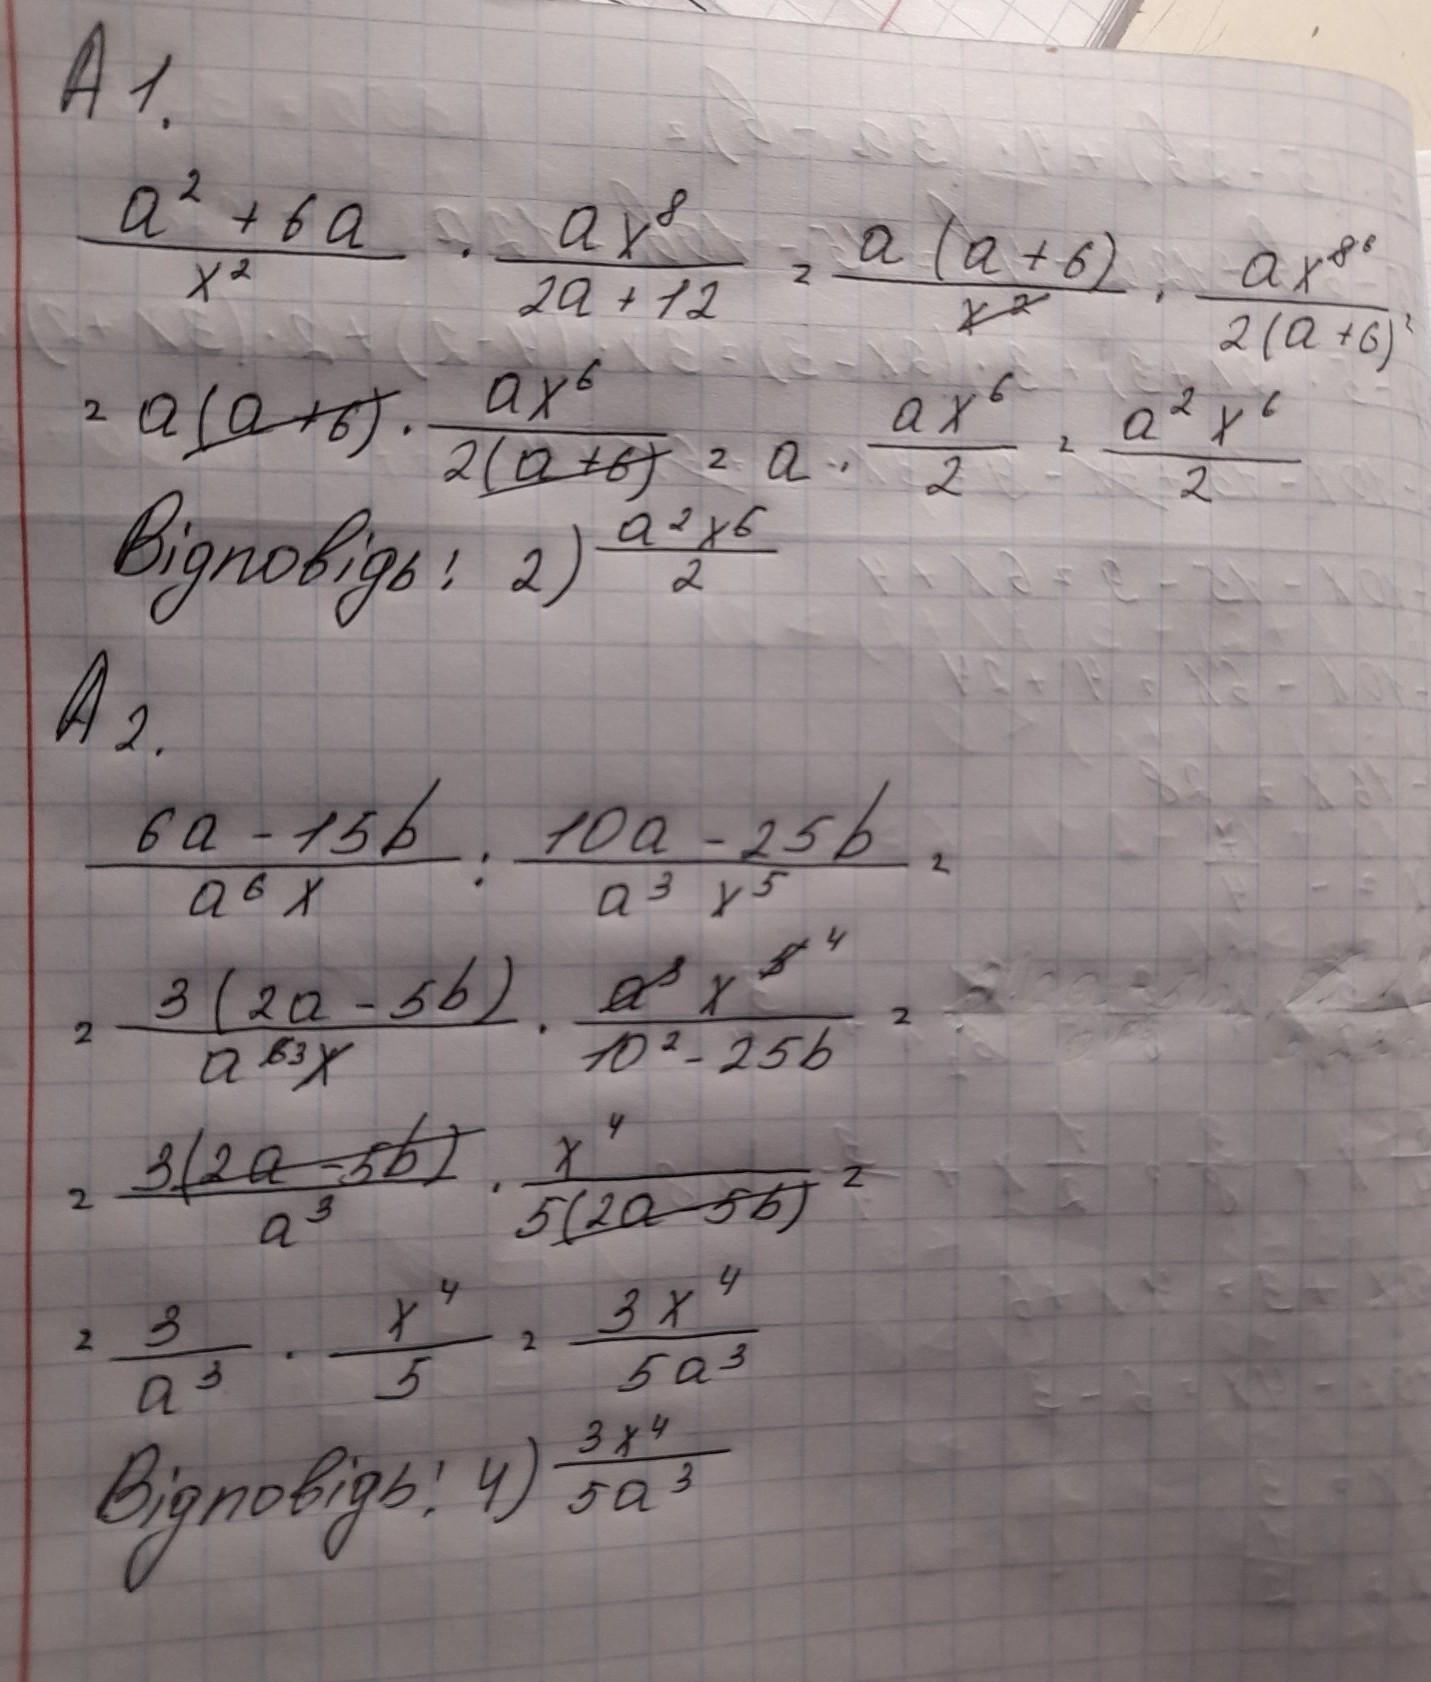 А 1.
a² + 6a / x² · ax⁸ / 2a + 12 = a (a + 6) / x² · ax⁸ ⁶ / 2(a + 6) =
= a(a + 6) · ax⁶ / 2(a + 6) = a · ax⁶ / 2 = a² x⁶ / 2
Відповідь: 2) a² x⁶ / 2
А 2.
6a - 15b / a⁶ x : 10a - 25b / a³ x⁵ =
= 3(2a - 5b) / a⁶ ³ x · a³ x⁵ ⁴ / 10² - 25b =
= 3(2a - 5b) / a³ · x⁴ / 5(2a - 5b) =
= 3 / a³ · x⁴ / 5 = 3x⁴ / 5a³
Відповідь: 4) 3x⁴ / 5a³